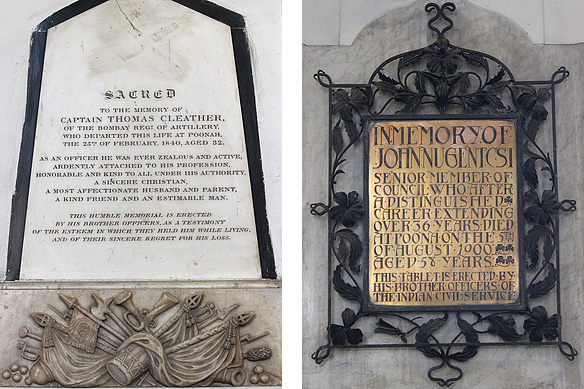 SACRED
TO THE MEMORY OF
CAPTAIN THOMAS CLEATHER,
OF THE BOMBAY REGT. OF ARTILLERY,
WHO DEPARTED THIS LIFE AT POONAH,
THE 25TH OF FEBRUARY, 1840, AGED 32.
AS AN OFFICER HE WAS EVER ZEALOUS AND ACTIVE,
ARDENTLY ATTACHED TO HIS PROFESSION,
HONORABLE AND KIND TO ALL UNDER HIS AUTHORITY,
A SINCERE CHRISTIAN,
A MOST AFFECTIONATE HUSBAND AND PARENT,
A KIND FRIEND AND AN ESTIMABLE MAN.
THIS HUMBLE MEMORIAL IS ERECTED
BY HIS BROTHER OFFICERS, AS A TESTIMONY
OF THE ESTEEM IN WHICH THEY HELD HIM WHILE LIVING,
AND OF THEIR SINCERE REGRET FOR HIS LOSS.
IN MEMORY OF
JOHN NUGENT C.S.I
SENIOR MEMBER OF
COUNCIL WHO AFTER
A DISTINGUISHED
CAREER EXTENDING
OVER 36 YEARS DIED
AT POONA ON THE 3RD
OF AUGUST 1900
AGED 58 YEARS
THIS TABLE IS ERECTED BY
HIS BROTHER OFFICERS OF
THE INDIAN CIVIL SERVICE